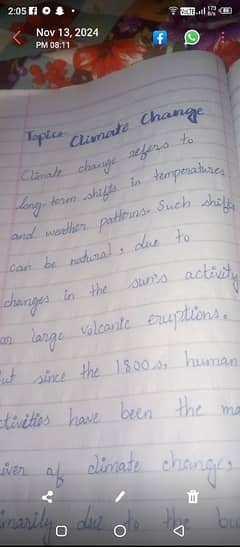 2:05
Nov 13, 2024
PM 08:11
Topic: Climate Change
Climate change refers to
long-term shifts in temperatures
and weather patterns. Such shifts
can be natural, due to
changes in the sun's activity
or large volcanic eruptions.
But since the 1800s, human
activities have been the
driver of climate change,
primarily due to the